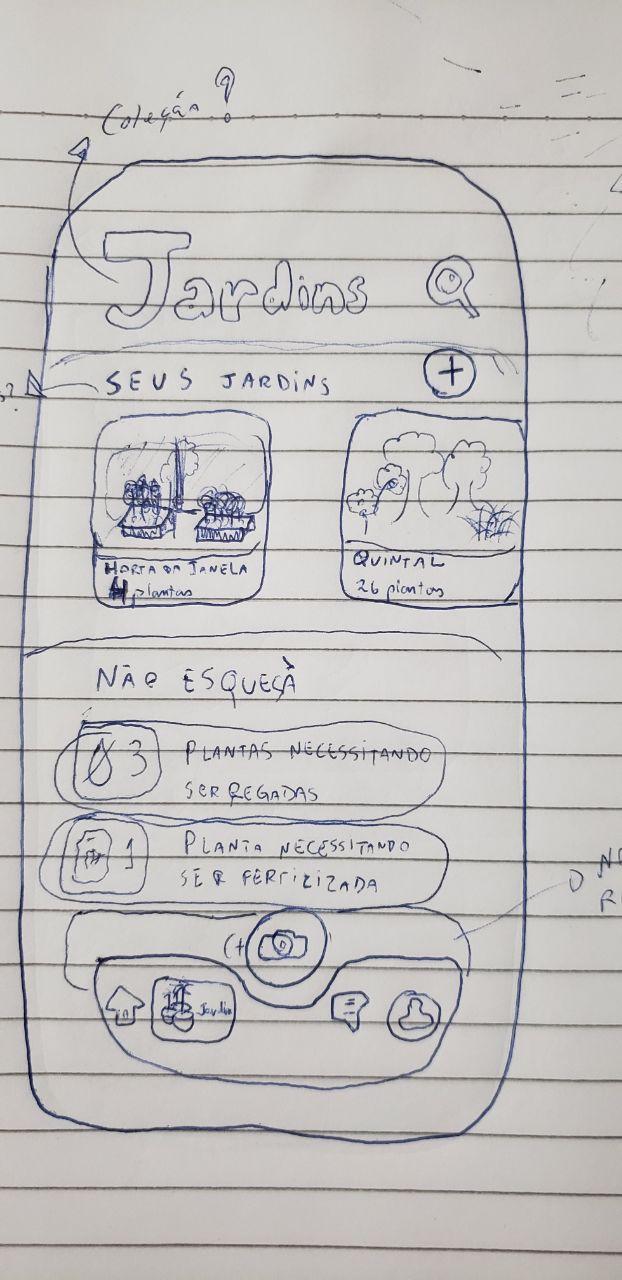 Coleção ?
Jardins
SEUS JARDINS
+
HORTA DA JANELA
4 plantas
QUINTAL
26 plantas
NÃO ESQUEÇA
3 PLANTAS NECESSITANDO
SER REGADAS
1 PLANTA NECESSITANDO
SER FERTILIZADA
(+
Jardins